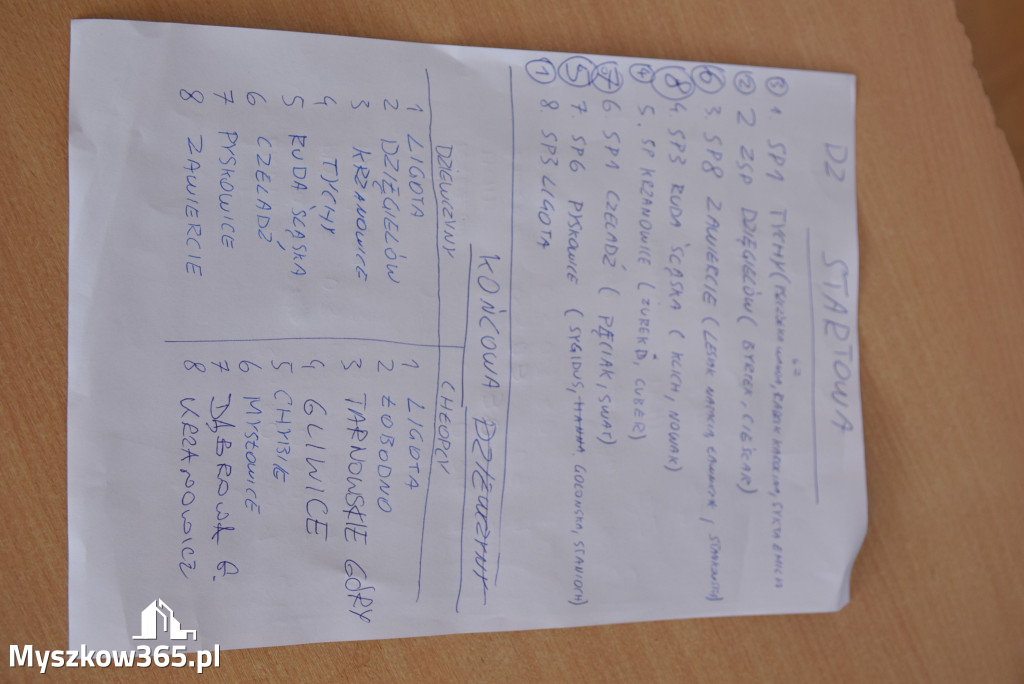 DZ STARTOWA
③ 1. SP1 TYCHY (
② 2 ZSP DZIĘGIELÓW ( BYRTEK, CIEŚLAR)
⑥ 3. SP8 ZAWIERCIE (
⑧ 4. SP3 RUDA ŚLĄSKA ( KLICH, NOWAK)
④ 5. SP KRZANOWICE (
⑦ 6. SP1 CZELADŹ ( PĘCIAK, SWAT)
⑤ 7. SP6 PYSKOWICE (
① 8 SP3 LIGOTA
KOŃCOWA DZIEWCZYNY
DZIEWCZYNY
1 LIGOTA
2 DZIĘGIELÓW
3 KRZANOWICE
4 TYCHY
5 RUDA ŚLĄSKA
6 CZELADŹ
7 PYSKOWICE
8 ZAWIERCIE
CHŁOPCY
1 LIGOTA
2 ŁOBODNO
3 TARNOWSKIE GÓRY
4 GLIWICE
5 CHYBIE
6 MYSŁOWICE
7 DĄBROWA G.
8 KRZANOWICE
Myszkow365.pl